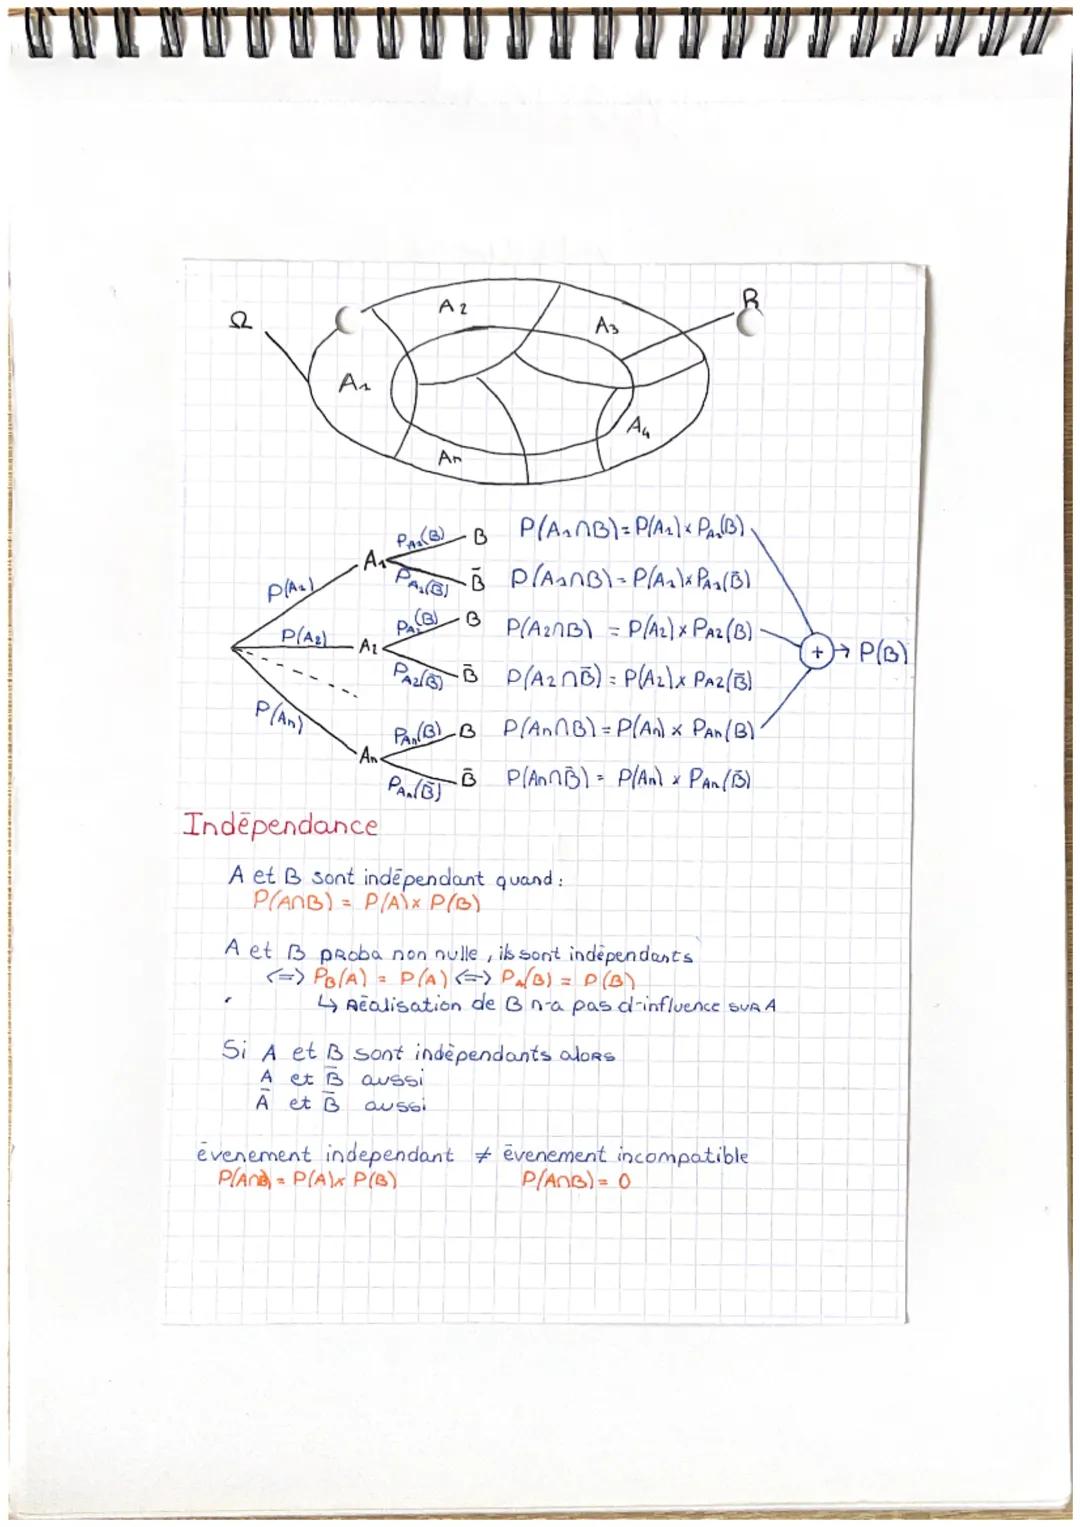 Ω
A2
A3
B
A1
A4
An
P(A1)
P(A2)
P(An)
A1
A2
An
PA1(B) B P(A1∩B) = P(A1) × PA1(B)
PA1(B̄) B̄ P(A1∩B) = P(A1) × PA1(B̄)
PA2(B) B P(A2∩B) = P(A2) × PA2(B)
+ → P(B)
PA2(B̄) B̄ P(A2∩B̄) = P(A2) × PA2(B̄)
PAn(B) B P(An∩B) = P(An) × PAn(B)
PAn(B̄) B̄ P(An∩B̄) = P(An) × PAn(B̄)
Indépendance
A et B sont indépendant quand :
P(A∩B) = P(A) × P(B)
A et B proba non nulle, ils sont indépendants
<=> PB(A) = P(A) <=> PA(B) = P(B)
↳ Réalisation de B n'a pas d'influence sur A
Si A et B sont indépendants alors
A et B̄ aussi
Ā et B̄ aussi
évenement independant ≠ évenement incompatible
P(A∩B) = P(A) × P(B) P(A∩B) = 0